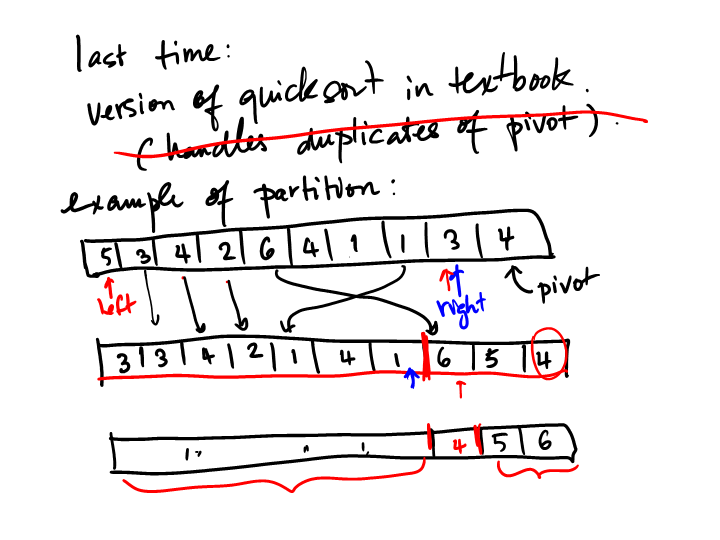 last time:
version of quicksort in textbook.
(handles duplicates of pivot).
example of partition:
5 3 4 2 6 4 1 1 3 4
left right pivot
3 3 4 2 1 4 1 6 5 4
4 5 6